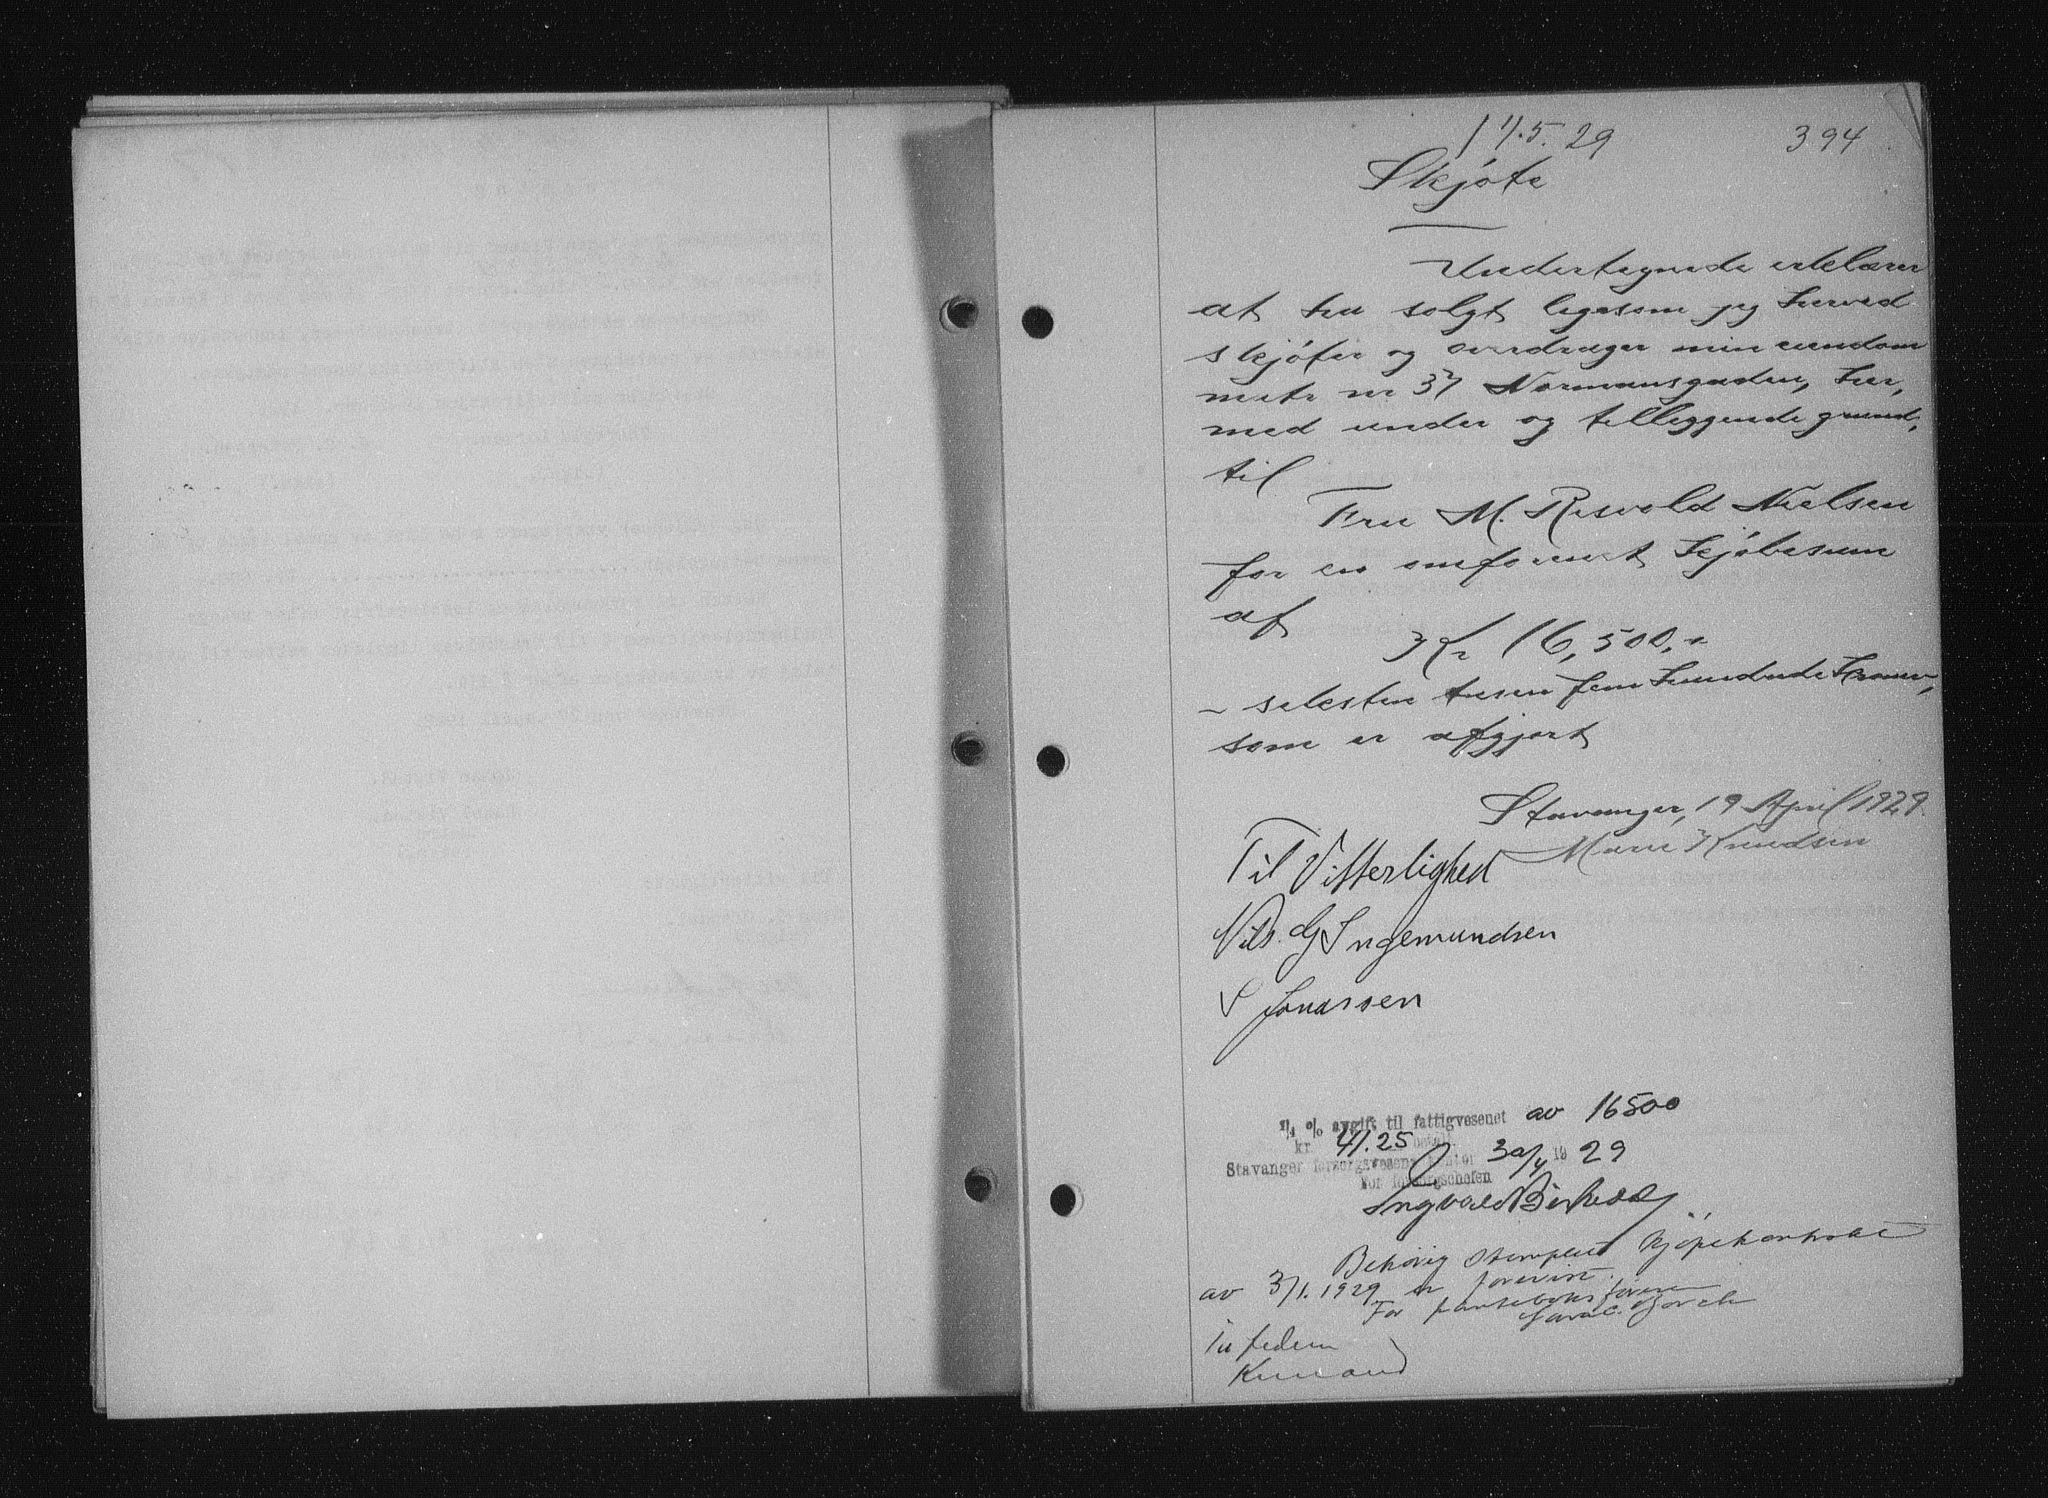 1/5. 29 394
Skjöte
Undertegnede erklærer
at ha solgt ligesom jeg herved
skjöter og overdrager min eiendom
matr nr 37 Normansgaden, her,
med under og tilleggende grund,
til
Fru M. Risvold Nielsen
for en omforenet kjöbesum
af
Kr 16,500,-
- seksten tusen fem hundrede kroner,
som er afgjort
Stavanger, 19 April 1929.
Marie Knudsen
Til Vitterlighed
Nils. G Ingemundsen
S Jonassen
1/4 % avgift til fattigvesenet av 16500
kr. 41.25 betalt
Stavanger forsorgsvesens kontor 30/4 19 29
For forsorgschefen
Ingvald
Behörig stemplet kjöpekontrakt
av 3/1. 1929 er forevist.
For panteboksföreren
In fidem